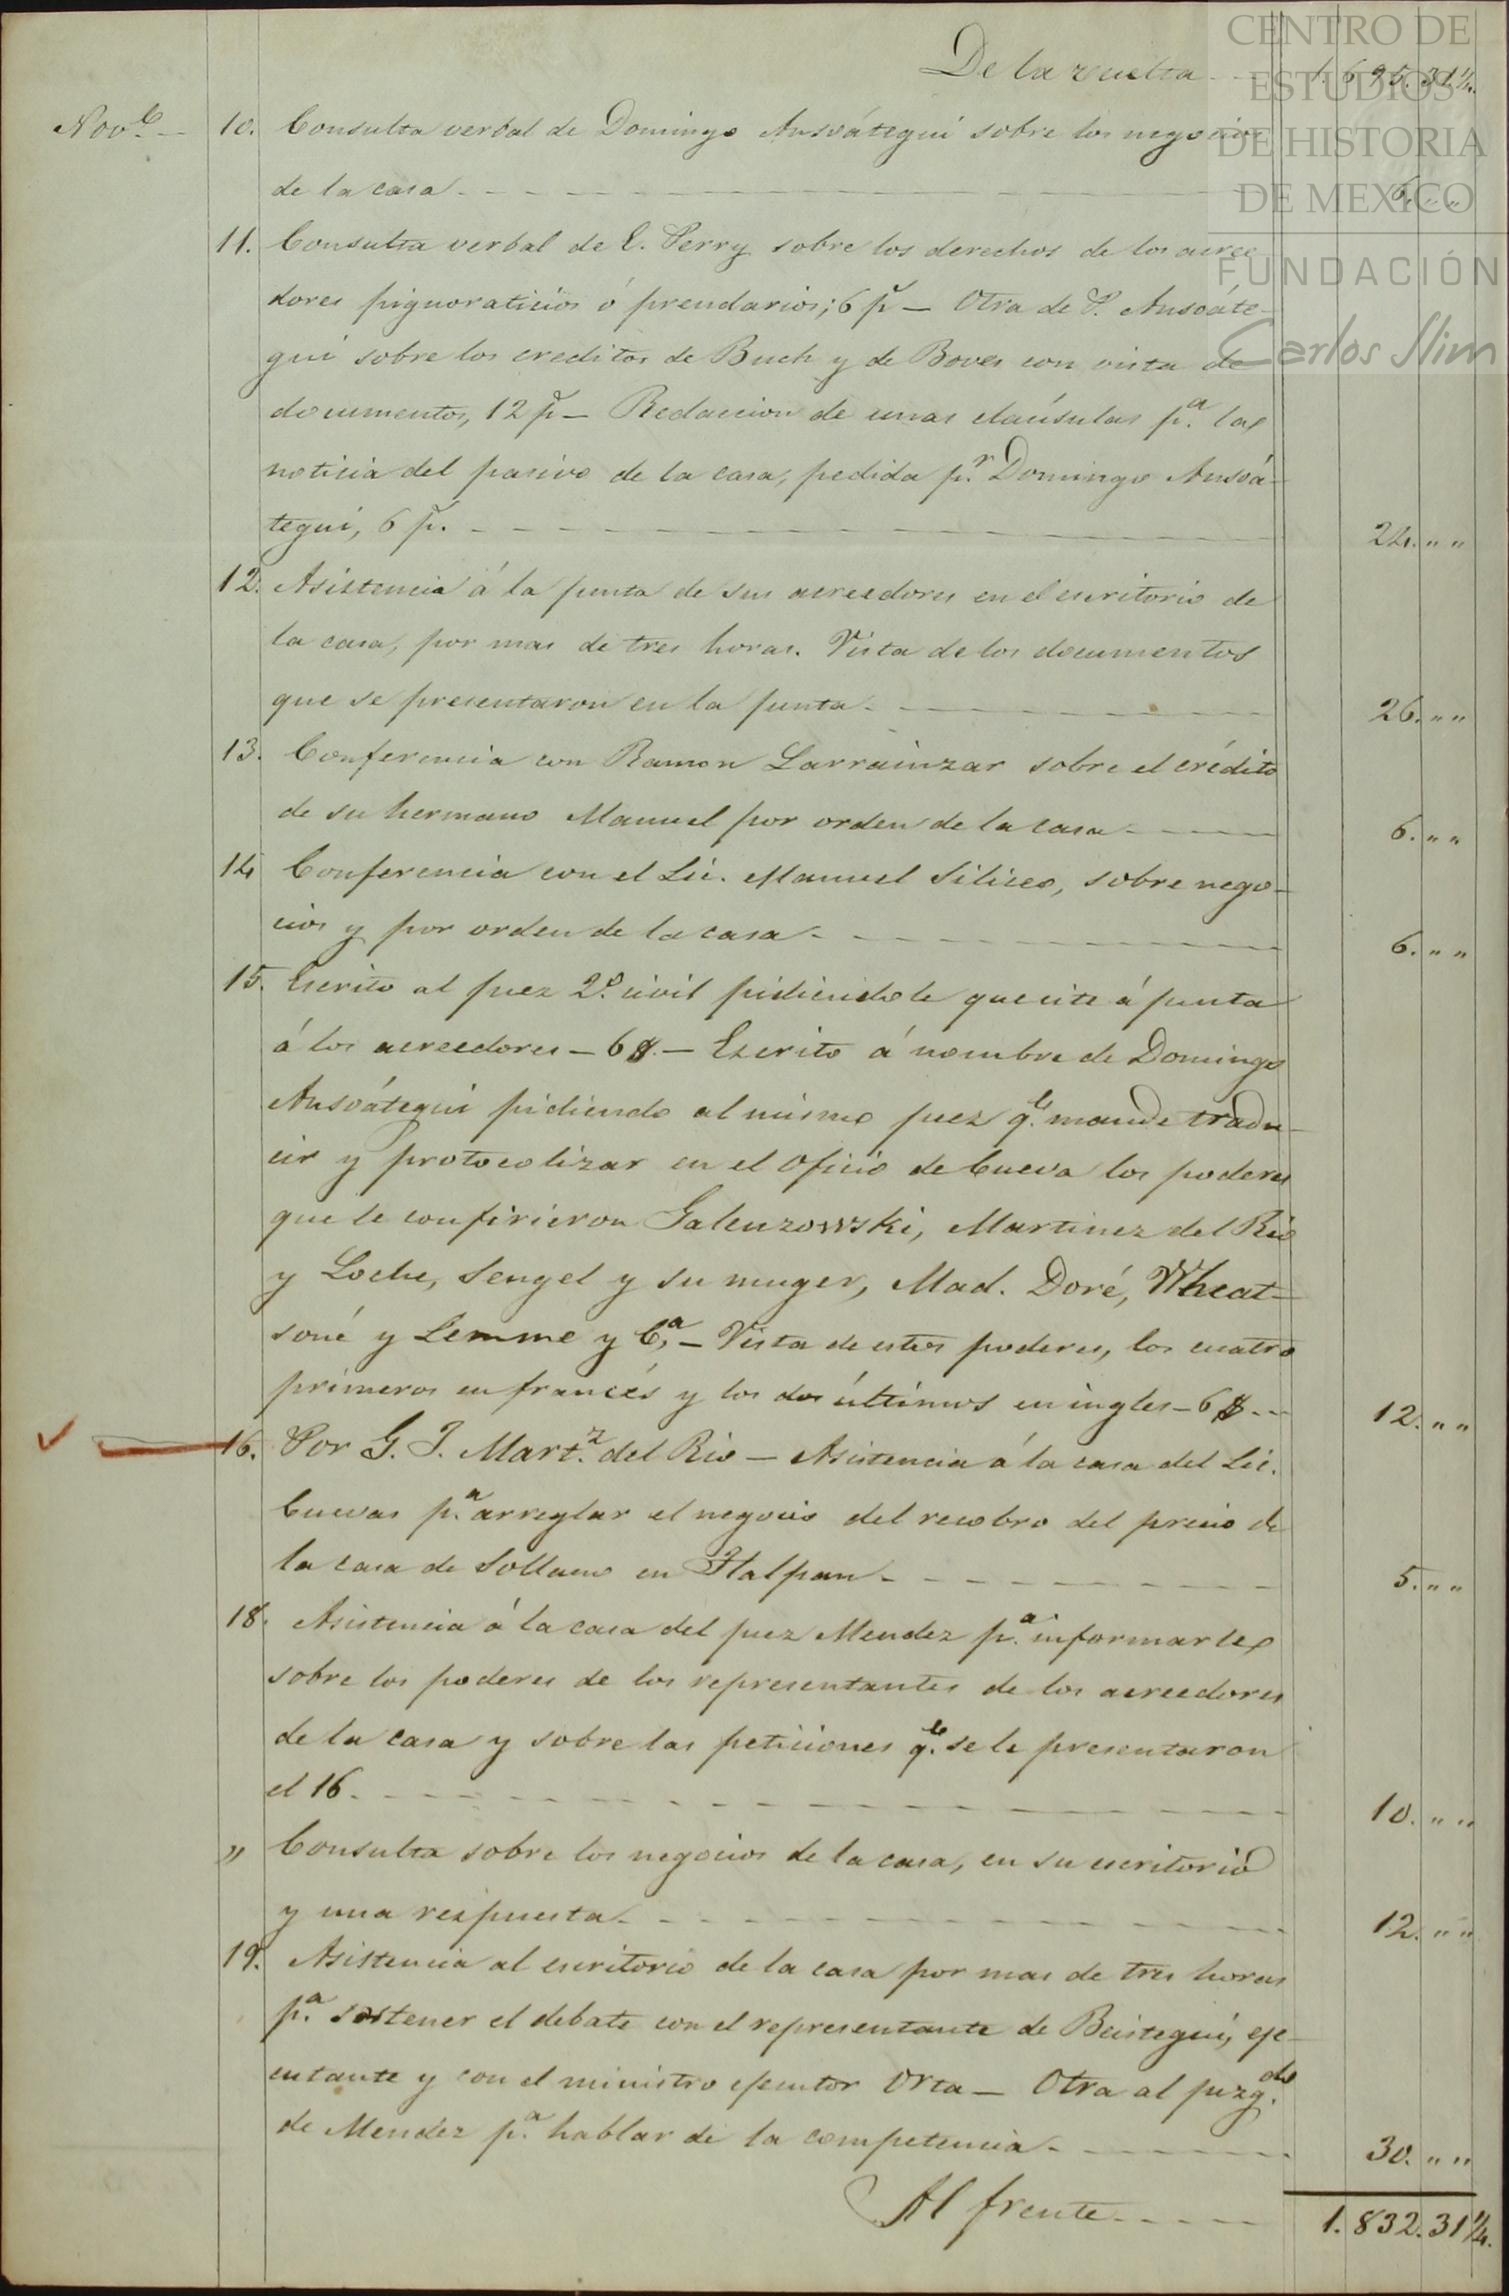 CENTRO DE
ESTUDIOS
DE HISTORIA
DE MEXICO
FUNDACIÓN
Carlos Slim
De la vuelta 1.695.31¼.
Nov.e 10. Consulta verbal de Domingo Ansoátegui sobre los negocios
de la casa 6. „ „
11. Consulta verbal de E. Perry sobre los derechos de los acree-
dores pignoraticios ó prendarios; 6 p — Otra de P. Ansoáte-
gui sobre los creditos de Buch y de Boves con vista de
documentos, 12 p — Redaccion de unas claúsulas p.a la
noticia del pasivo de la casa, pedida p.r Domingo Ansoá-
tegui, 6 p. 24. „ „
12. Asistencia á la junta de sus acreedores en el escritorio de
la casa, por mas de tres horas. Vista de los documentos
que se presentaron en la junta 26. „ „
13. Conferencia con Ramon Larrainzar sobre el crédito
de su hermano Manuel por orden de la casa 6. „ „
14 Conferencia con el Lic. Manuel Siliceo, sobre nego-
cios y por orden de la casa 6. „ „
15. Escrito al juez 2.º civil pidiendole que cite á junta
á los acreedores — 6 $. — Escrito á nombre de Domingo
Ansoátegui pidiendo al mismo juez q.e mande tradu-
cir y protocolizar en el oficio de Cueva los poderes
que le confirieron Galenzowski, Martinez del Rio
y Loche, Sengel y su muger, Mad. Doré, Wheat-
soné y Lemme y C.a — Vista de estos poderes, los cuatro
primeros en francés y los dos últimos en ingles — 6 $ 12. „ „
16. Por G. J. Mart.z del Rio — Asistencia á la casa del Lic.
Cuevas p.a arreglar el negocio del recobro del precio de
la casa de Sollano en Tlalpan 5. „ „
18. Asistencia á la casa del juez Mendez p.a informarle
sobre los poderes de los representantes de los acreedores
de la casa y sobre las peticiones q.e se le presentaron
el 16 10. „ „
„ Consulta sobre los negocios de la casa, en su escritorio
y una respuesta 12. „ „
19. Asistencia al escritorio de la casa por mas de tres horas
p.a sostener el debate con el representante de Beistegui, eje-
cutante y con el ministro ejecutor Orta — Otra al juzg.do
de Mendez p.a hablar de la competencia 30. „ „
Al frente 1.832.31¼.